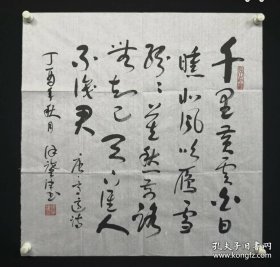 千里黄云白日
曛北风吹雁雪
纷々莫愁前路
無知己天下谁人
不识君 唐高适诗
丁酉年秋月
书
孔夫子旧书网